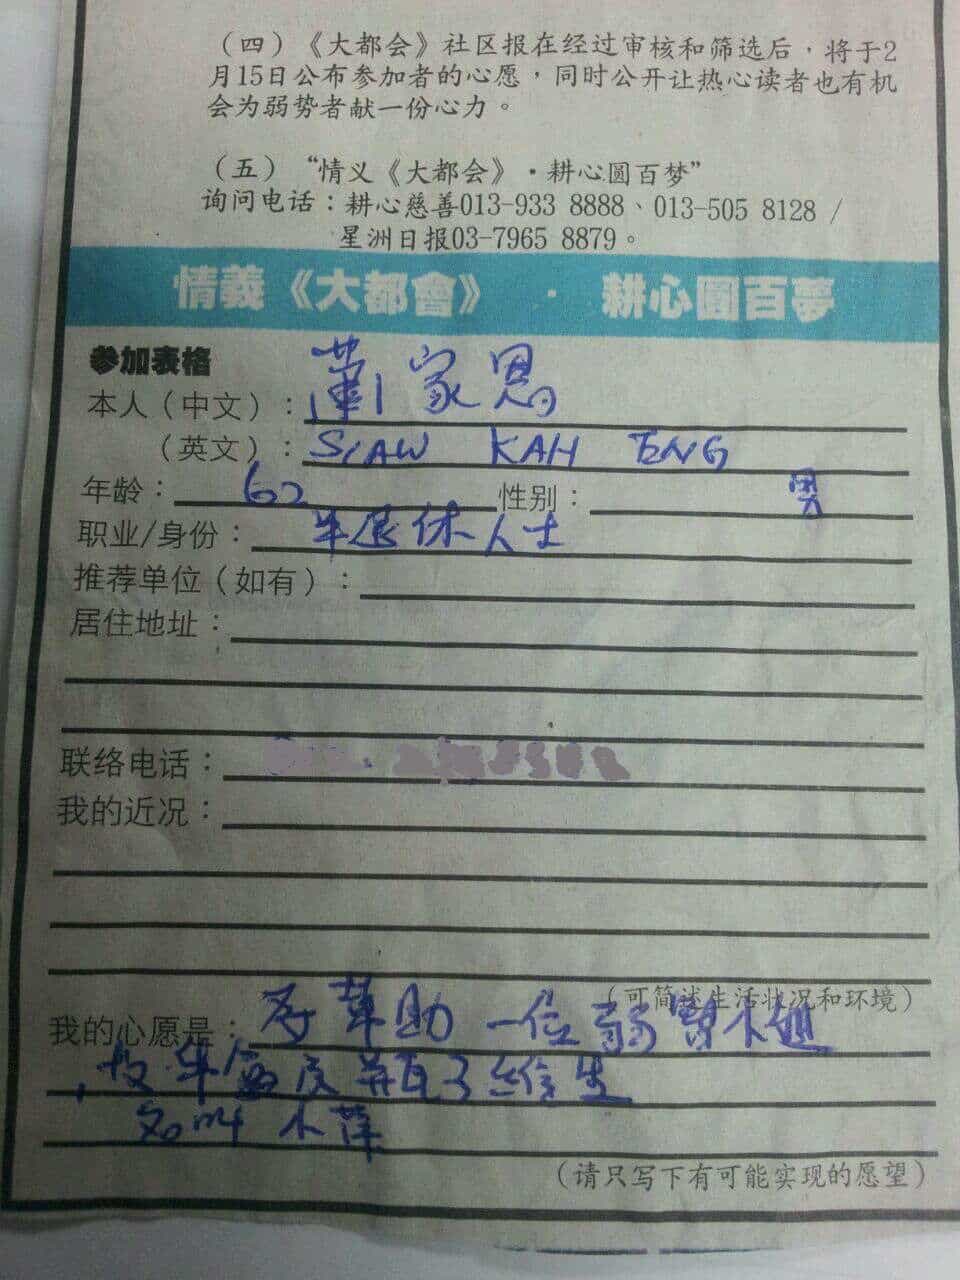 （四）《大都会》社区报在经过审核和筛选后，将于2
月15日公布参加者的心愿，同时公开让热心读者也有机
会为弱势者献一份心力。
（五）“情义《大都会》·耕心圆百梦”
询问电话：耕心慈善013-933 8888、013-505 8128 /
星洲日报03-7965 8879。
情義《大都會》 · 耕心圓百夢
参加表格
本人（中文）：蕭家恩
（英文）：SIAW KAH ENG
年龄：62 性别：男
职业/身份：半退休人士
推荐单位（如有）：
居住地址：
联络电话：
我的近况：
（可简谈生活状况和环境）
我的心愿是： 助一位弱
生
名叫小萍
（请只写下有可能实现的愿望）